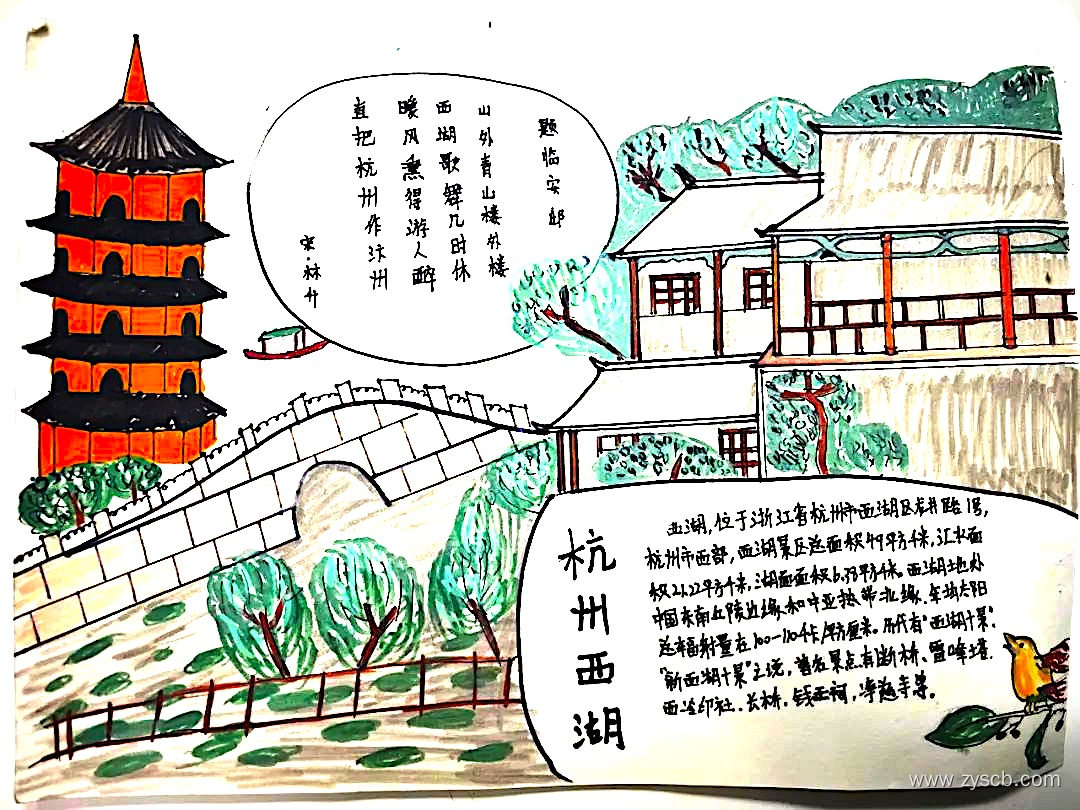 题临安邸
山外青山楼外楼
西湖歌舞几时休
暖风熏得游人醉
直把杭州作汴州
宋·林升
杭州西湖
西湖,位于浙江省杭州市西湖区龙井路1号,
杭州市西部,西湖景区总面积49平方千米,汇水面
积21.22平方千米,湖面面积6.38平方千米。西湖地处
中国东南丘陵边缘和中亚热带北缘,年均太阳
总辐射量在100—110千卡/平方厘米。历代有"西湖十景",
"新西湖十景"之说,著名景点有断桥、雷峰塔、
西泠印社、长桥、钱王祠、净慈寺等。
www.zyscb.com